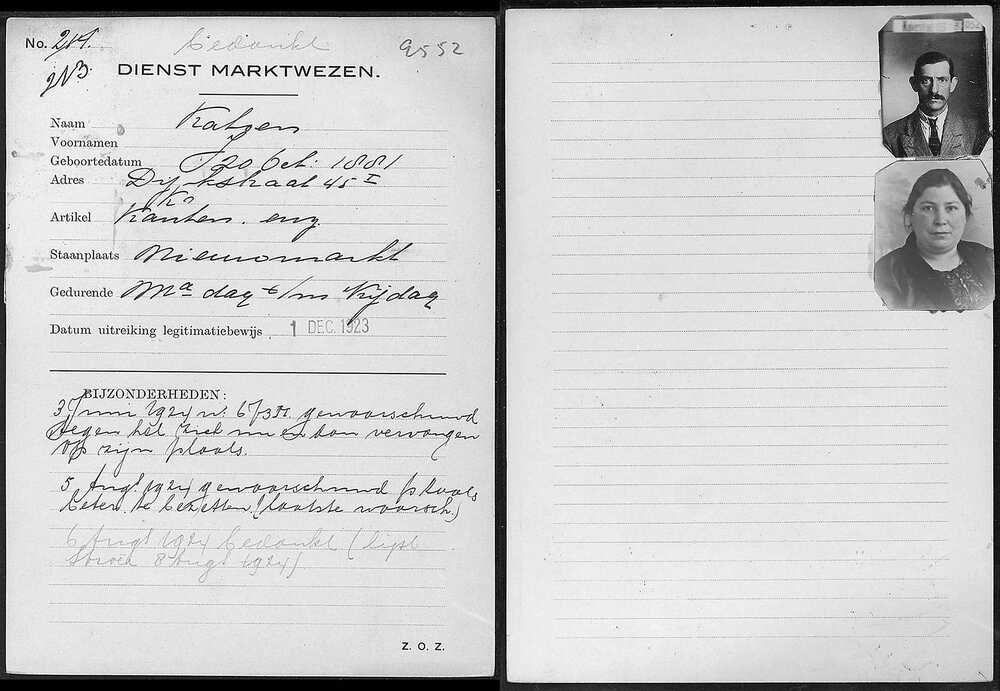 No. 214.
Bedankt
9552
213
DIENST MARKTWEZEN.
Naam Katzen
Voornamen J
Geboortedatum 20 Oct. 1881
Adres Dijkstraat 45 I
Ka
Artikel Kanten. enz.
Staanplaats Nieuwmarkt
Gedurende Ma dag t/m Vrijdag
Datum uitreiking legitimatiebewijs 1 DEC. 1923
BIJZONDERHEDEN:
3 Juni 1924 n. gewaarschuwd
tegen het zich nu en dan vervangen
op zijn plaats.
5 Augt 1924 gewaarschuwd plaats
beter te bezetten (laatste waarsch.)
6 Augt 1924 Bedankt (lijst
8 Augt 1924)
Z. O. Z.